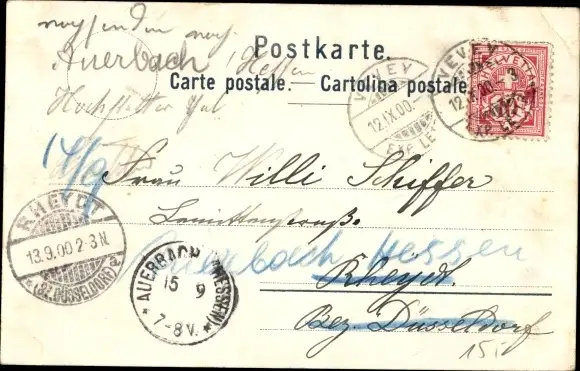 Postkarte.
Auerbach Hessen
Carte postale. — Cartolina postale.
VEVEY
12.IX.00
EXP. LE
VEVEY
12.IX.00
EXP. LE
HELVETIA
14/9
Frau Willi Schiffer
RHEYDT
13.9.00 2-3 N.
(BZ. DÜSSELDORF)
Auerbach Hessen
AUERBACH (HESSEN)
15 9
7-8 V.
Rheydt.
Bez. Düsseldorf